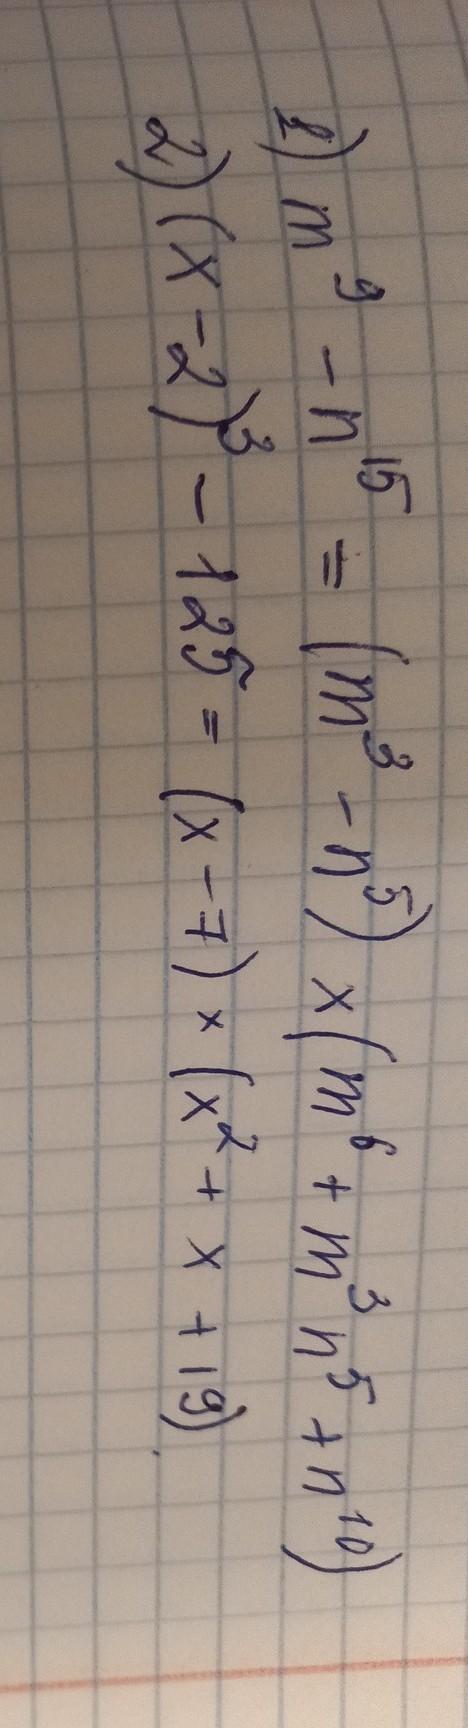 1) m⁹ - n¹⁵ = (m³ - n⁵) × (m⁶ + m³n⁵ + n¹⁰)
2) (x - 2)³ - 125 = (x - 7) × (x² + x + 19).